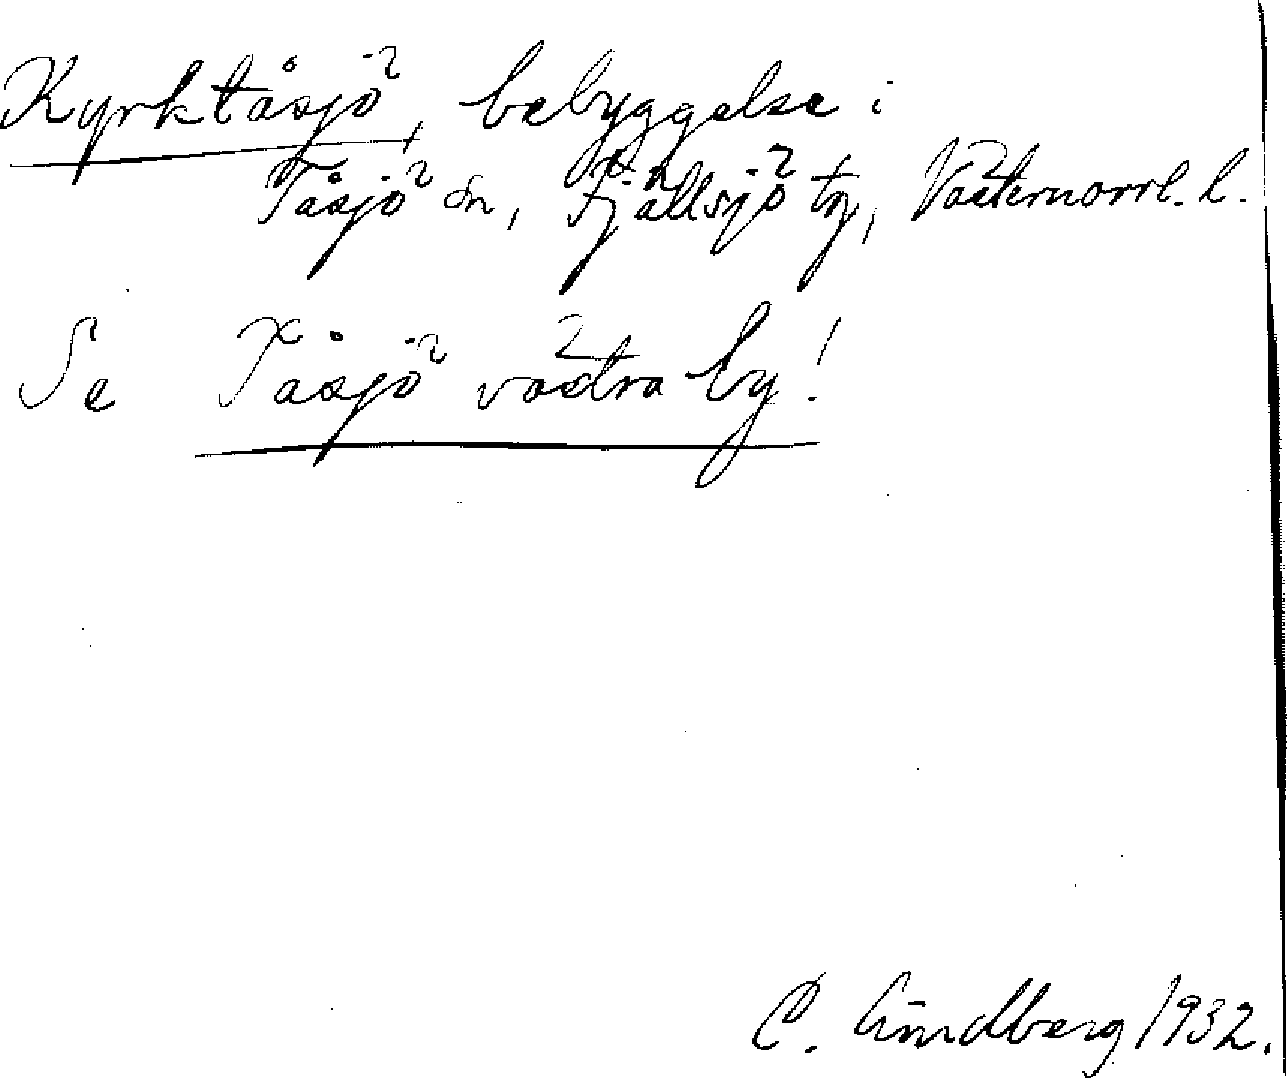 Kyrktåsjö, bebyggelse i
Tåsjö sn, Fjällsjö tg, Västernorrl. l.
Se Tåsjö västra by!
C. Lindberg 1932.